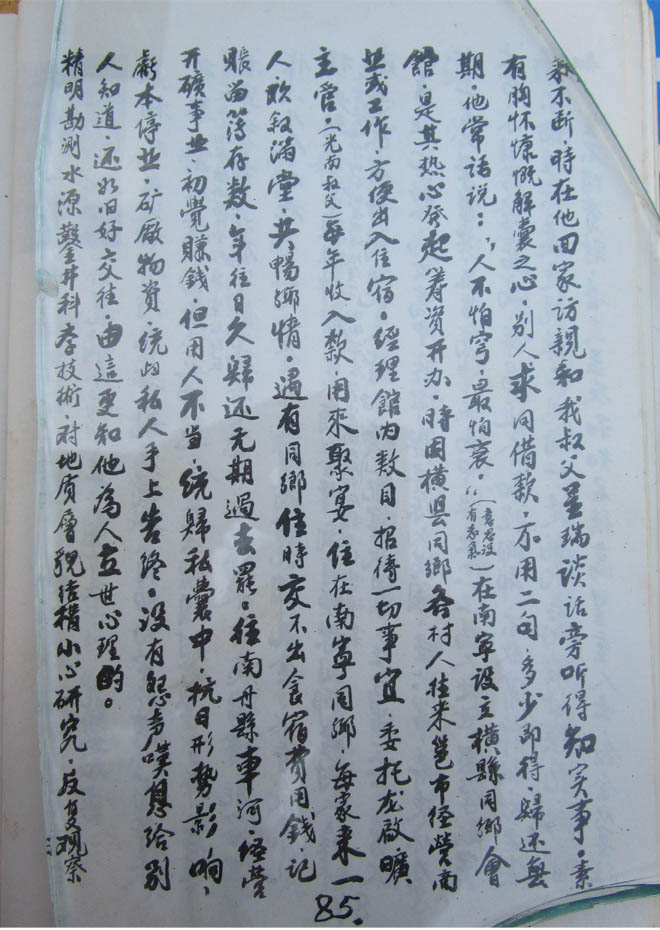 和不断，時在他回家访親和我叔父呈瑞谈话旁听得知实事。素
有胸怀慷慨解囊之心，别人求同借款，不用二句，多少即得，歸还無
期，他常话说：“人不怕穷，最怕衰。”（意思没有志氣）在南宁设立横縣同鄉會
館，是其热心发起筹资开办，時因横县同鄉各村人往来邕市经营商
业或工作，方便出入住宿。经理館内数目，招待一切事宜，委托龙啟曠
主管，（光南叔父）每年收入款，用来聚宴，住在南寧同鄉，每家来一
人，欢叙滿堂，共暢鄉情，遇有同鄉住時交不出食宿费用錢，记
賬留簿存数，年往日久歸还无期過去罷。往南丹縣車河，经营
开礦事业，初覺賺錢，但用人不当，统歸私囊中，抗日形势影响，
虧本停业，矿厰物资，统归私人手上告终。没有怨言嘆息给别
人知道，还如旧好交往，由這更知他為人立世心理的。
精明勘测水源鑿井科学技術，对地质層貌结構小心研究，反复观察
85.